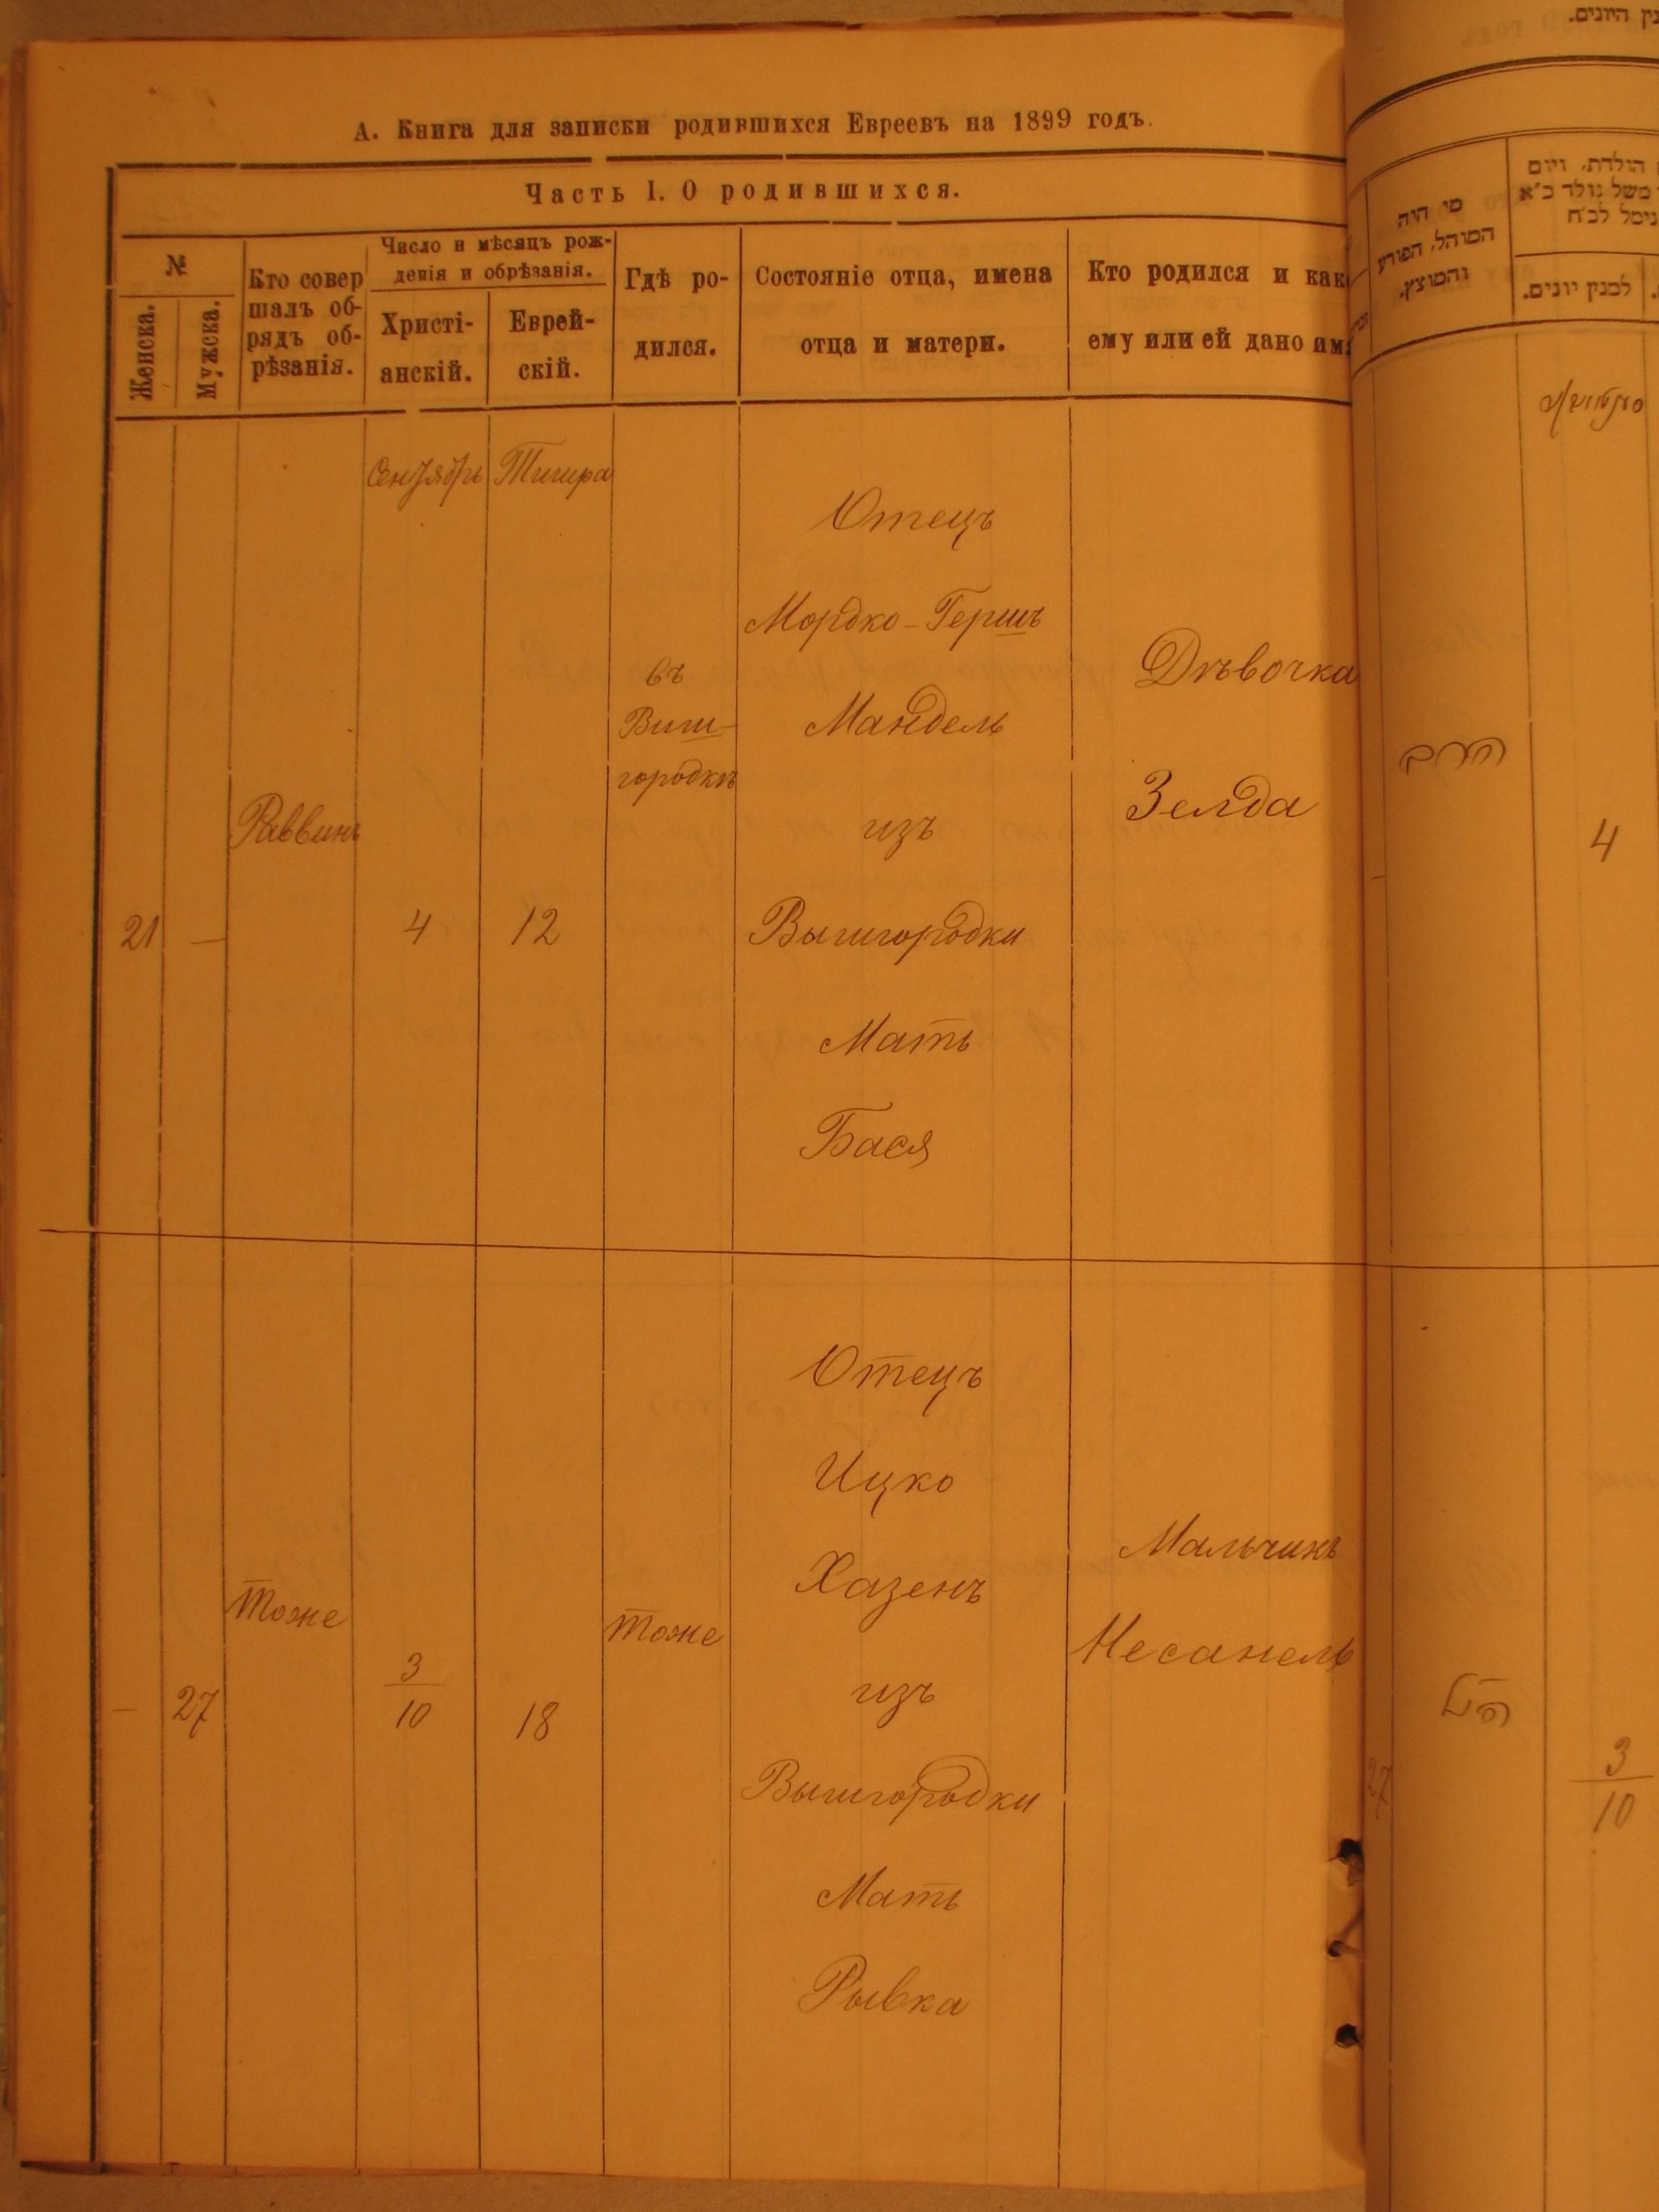 А. Книга для записки родившихся Евреевъ на 1899 годъ.
Часть I. О родившихся.
№
Женска.
Мужска.
Кто совер
шалъ об-
рядъ об-
рѣзанія.
Число и мѣсяцъ рож-
денія и обрѣзанія.
Христі-
анскій.
Еврей-
скій.
Гдѣ ро-
дился.
Состояніе отца, имена
отца и матери.
Кто родился и как
ему или ей дано им
21
—
Раввинъ
Сентябрь
4
Тишра
12
въ
Виш-
городкѣ
Отецъ
Мордко-Гершъ
Мандель
изъ
Вышгородки
Мать
Бася
Дѣвочка
Зелда
—
27
тоже
3
10
18
тоже
Отецъ
Ицко
Хазенъ
изъ
Вышгородки
Мать
Рывка
Мальчикъ
Несанель
היונים.
מי היה
המוהל, הפורע
והמוצץ.
הולדת, ויום
נימל לב״ח
למנין יונים.
הרב
4
הנ״ל
27
3
10